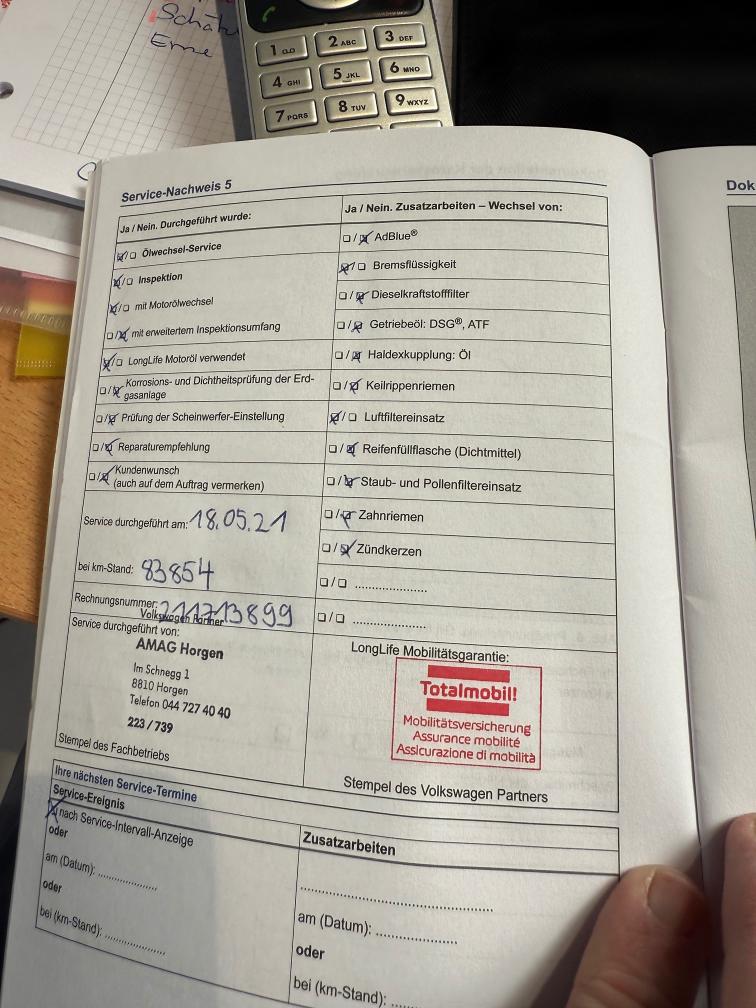 Schä
Erne
1
2 ABC
3 DEF
4 GHI
5 JKL
6 MNO
7 PQRS
8 TUV
9 WXYZ
Service-Nachweis 5
Dok
Ja / Nein. Durchgeführt wurde:
☒/☐ Ölwechsel-Service
☒/☐ Inspektion
☒/☐ mit Motorölwechsel
☐/☒ mit erweitertem Inspektionsumfang
☒/☐ LongLife Motoröl verwendet
☐/☒ Korrosions- und Dichtheitsprüfung der Erd-
gasanlage
☐/☒ Prüfung der Scheinwerfer-Einstellung
☐/☒ Reparaturempfehlung
☐/☒ Kundenwunsch
(auch auf dem Auftrag vermerken)
Service durchgeführt am: 18.05.21
bei km-Stand: 83854
Rechnungsnummer: 211713899
Volkswagen Partner
Service durchgeführt von:
AMAG Horgen
Im Schnegg 1
8810 Horgen
Telefon 044 727 40 40
223 / 739
Stempel des Fachbetriebs
Ja / Nein. Zusatzarbeiten – Wechsel von:
☐/☒ AdBlue®
☒/☐ Bremsflüssigkeit
☐/☒ Dieselkraftstofffilter
☐/☒ Getriebeöl: DSG®, ATF
☐/☒ Haldexkupplung: Öl
☐/☒ Keilrippenriemen
☒/☐ Luftfiltereinsatz
☐/☒ Reifenfüllflasche (Dichtmittel)
☐/☒ Staub- und Pollenfiltereinsatz
☐/☒ Zahnriemen
☐/☒ Zündkerzen
☐/☐ ....................
☐/☐ ....................
LongLife Mobilitätsgarantie:
Totalmobil!
Mobilitätsversicherung
Assurance mobilité
Assicurazione di mobilità
Stempel des Volkswagen Partners
Ihre nächsten Service-Termine
Service-Ereignis
☒ nach Service-Intervall-Anzeige
oder
am (Datum): ....................
oder
bei (km-Stand): ....................
Zusatzarbeiten
..................................................
am (Datum): ....................
oder
bei (km-Stand): ....................